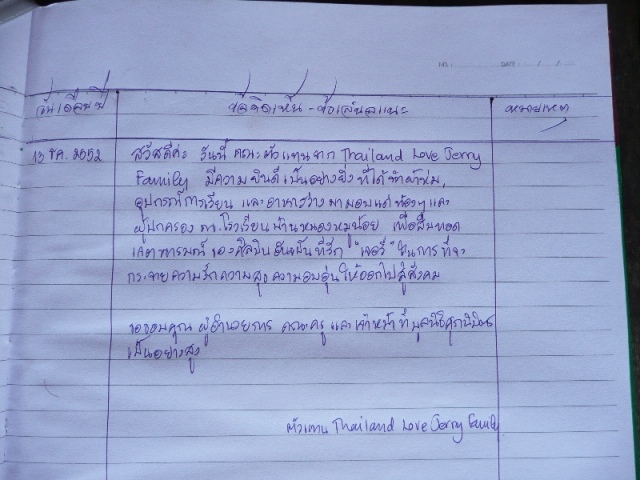 NO. : DATE : / /
วันเดือนปี ข้อคิดเห็น - ข้อเสนอแนะ หมายเหตุ
13 ธค. 2552 สวัสดีค่ะ วันนี้ คณะตัวแทนจาก Thailand Love Jerry
Family มีความยินดีเป็นอย่างยิ่ง ที่ได้นำผ้าห่ม,
อุปกรณ์การเรียน และอาหารว่าง มามอบแด่น้องๆและ
ผู้ปกครอง ณ.โรงเรียนบ้านหนองหมูน้อย เพื่อสืบทอด
เจตนารมณ์ ของศิลปินอันเป็นที่รัก "เจอรี่" ในการที่จะ
กระจายความรักความสุข ความอบอุ่นให้ออกไปสู่สังคม
ขอขอบคุณ ผู้อำนวยการ คณะครู และเจ้าหน้าที่มูลนิธิศุภนิมิตร
เป็นอย่างสูง
ตัวแทน Thailand Love Jerry Family